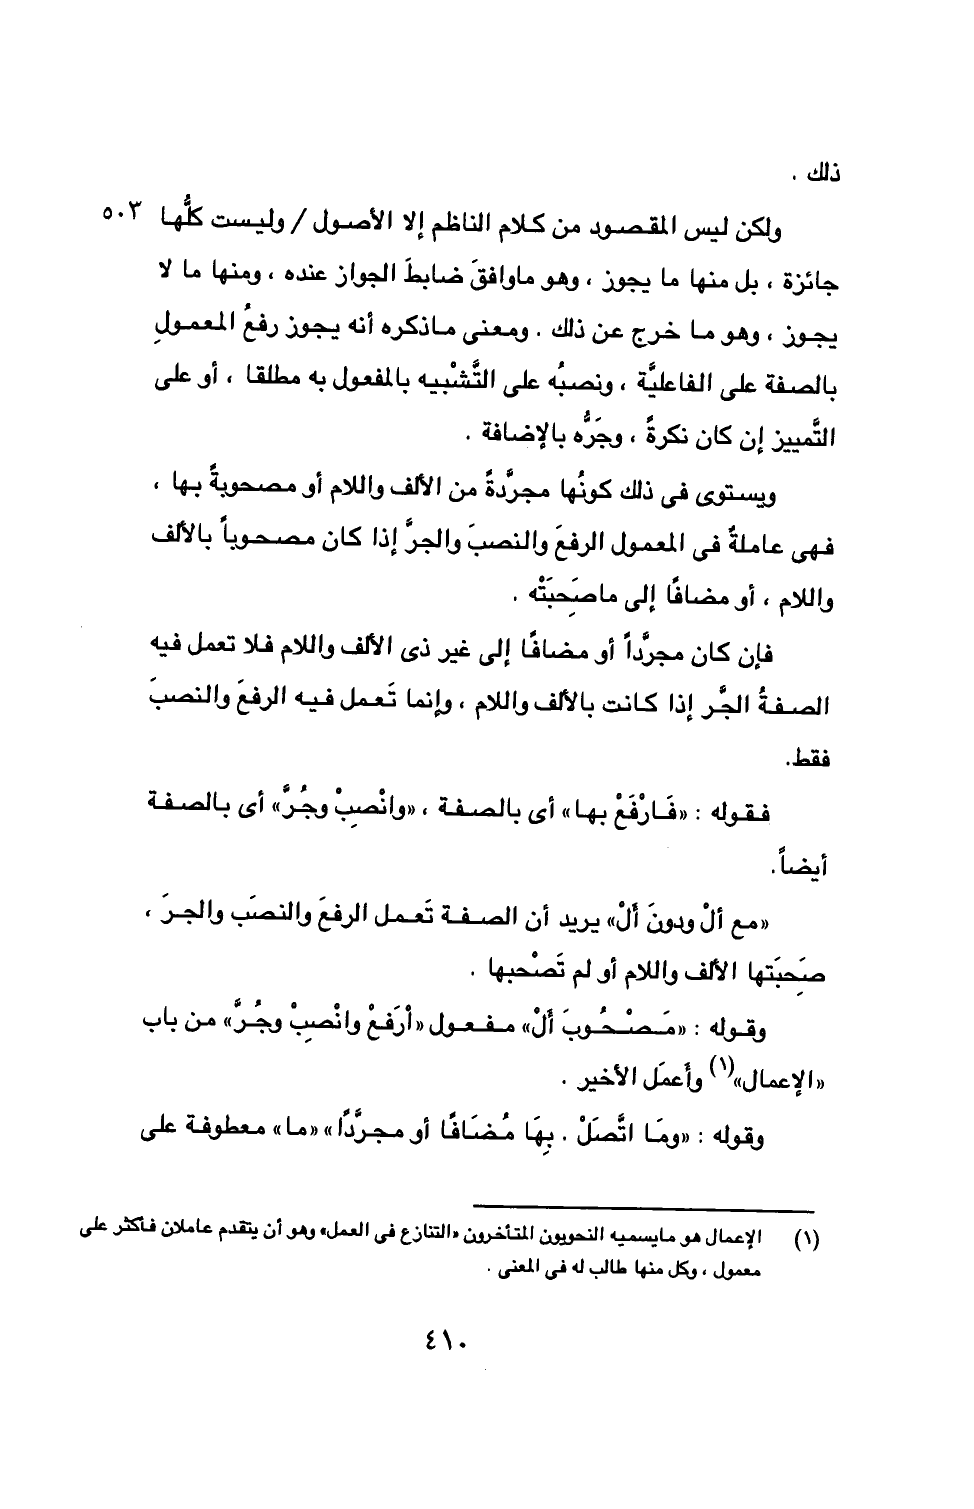 ذلك .
ولكن ليس المقصود من كلام الناظم إلا الأصول / وليست كلُّها ٥٠٣
جائزة ، بل منها ما يجوز ، وهو ماوافقَ ضابطَ الجواز عنده ، ومنها ما لا
يجوز ، وهو ما خرج عن ذلك . ومعنى ماذكره أنه يجوز رفعُ المعمولِ
بالصفة على الفاعليَّة ، ونصبُه على التَّشْبيه بالمفعول به مطلقا ، أو على
التَّمييز إن كان نكرةً ، وجَرُّه بالإضافة .
ويستوى فى ذلك كونُها مجرَّدةً من الألف واللام أو مصحوبةً بها ،
فهى عاملةٌ فى المعمول الرفعَ والنصبَ والجرَّ إذا كان مصحوباً بالألف
واللام ، أو مضافًا إلى ماصَحِبَتْه .
فإن كان مجرَّداً أو مضافًا إلى غير ذى الألف واللام فلا تعمل فيه
الصفةُ الجَّر إذا كانت بالألف واللام ، وإنما تَعمل فيه الرفعَ والنصبَ
فقط.
فقوله : «فَارْفَعْ بها» أى بالصفة ، «وانْصِبْ وجُرَّ» أى بالصفة
أيضاً.
«مع ألْ ودونَ أَلْ» يريد أن الصفة تَعمل الرفعَ والنصبَ والجرَ ،
صَحِبَتها الألف واللام أو لم تَصْحبها .
وقوله : «مَصْحُوبَ أَلْ» مفعول «أرْفَعْ وانْصِبْ وجُرَّ» من باب
«الإعمال»(١) وأَعمَل الأخير .
وقوله : «ومَا اتَّصَلْ . بِهَا مُضَافًا أو مجرَّدًا» «ما» معطوفة على
(١) الإعمال هو مايسميه النحويون المتأخرون «التنازع فى العمل» وهو أن يتقدم عاملان فأكثر على
معمول ، وكل منها طالب له فى المعنى .
٤١٠